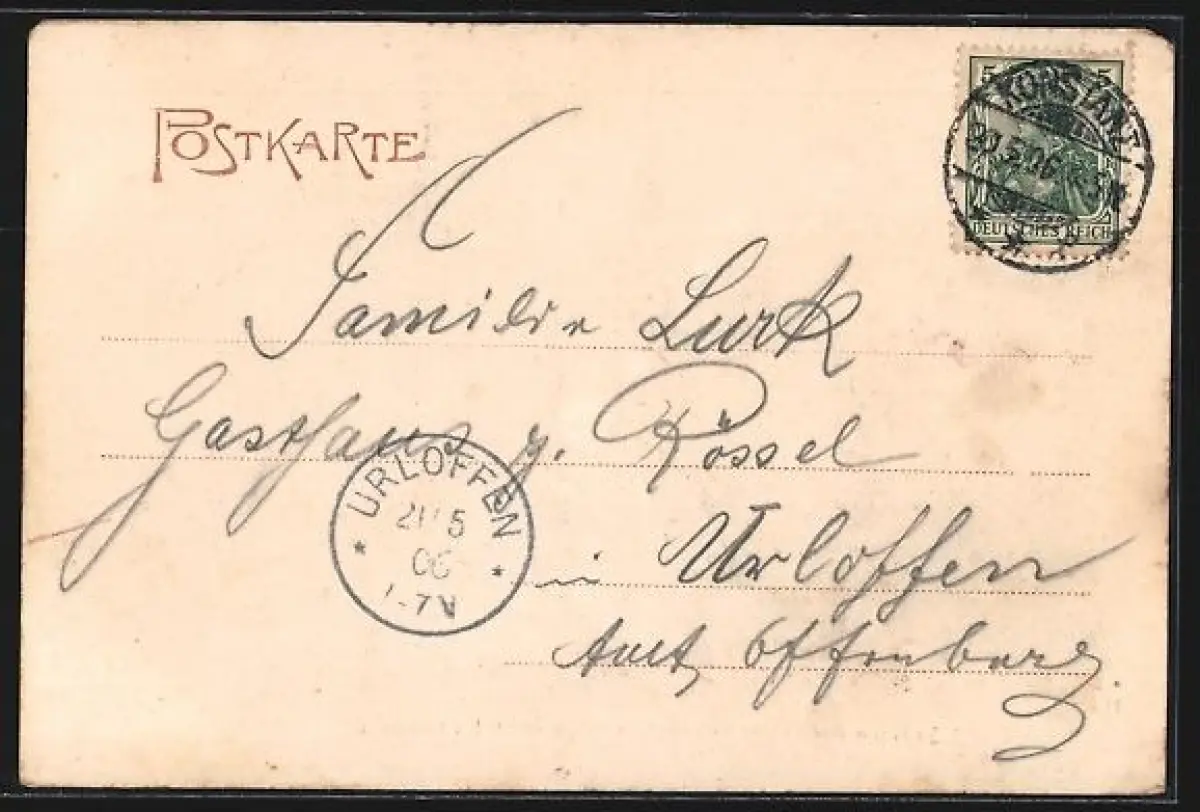 POSTKARTE
5 5
KONSTANZ
20.5.06
DEUTSCHES REICH
Familie Lurk
Gasthaus z. Rössel
URLOFFEN
5
06
7-V
in Urloffen
Amt Offenburg.